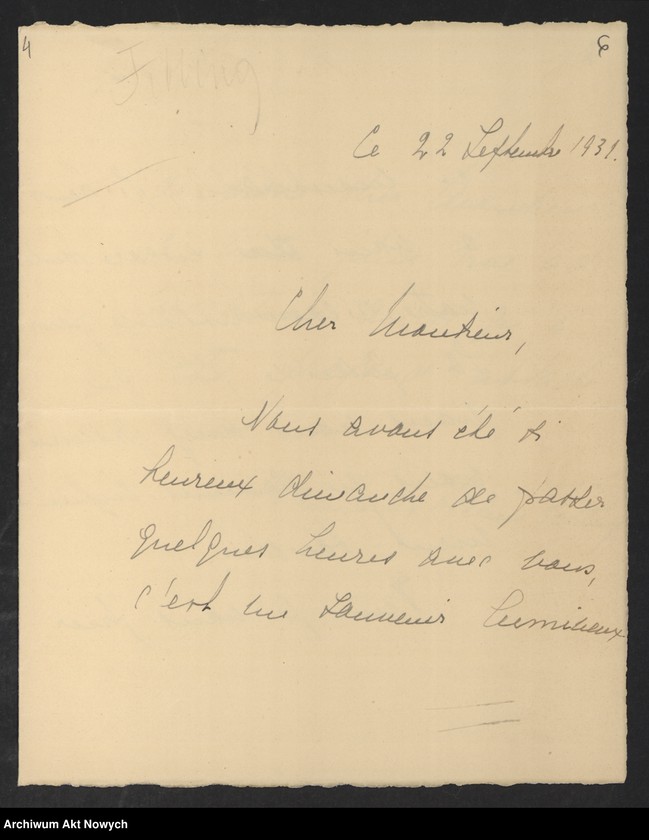 4
6
Ce 22 Septembre 1931.
Cher Monsieur,
Nous avons été si
heureux dimanche de passer
quelques heures avec vous,
c'est un souvenir lumineux
Archiwum Akt Nowych